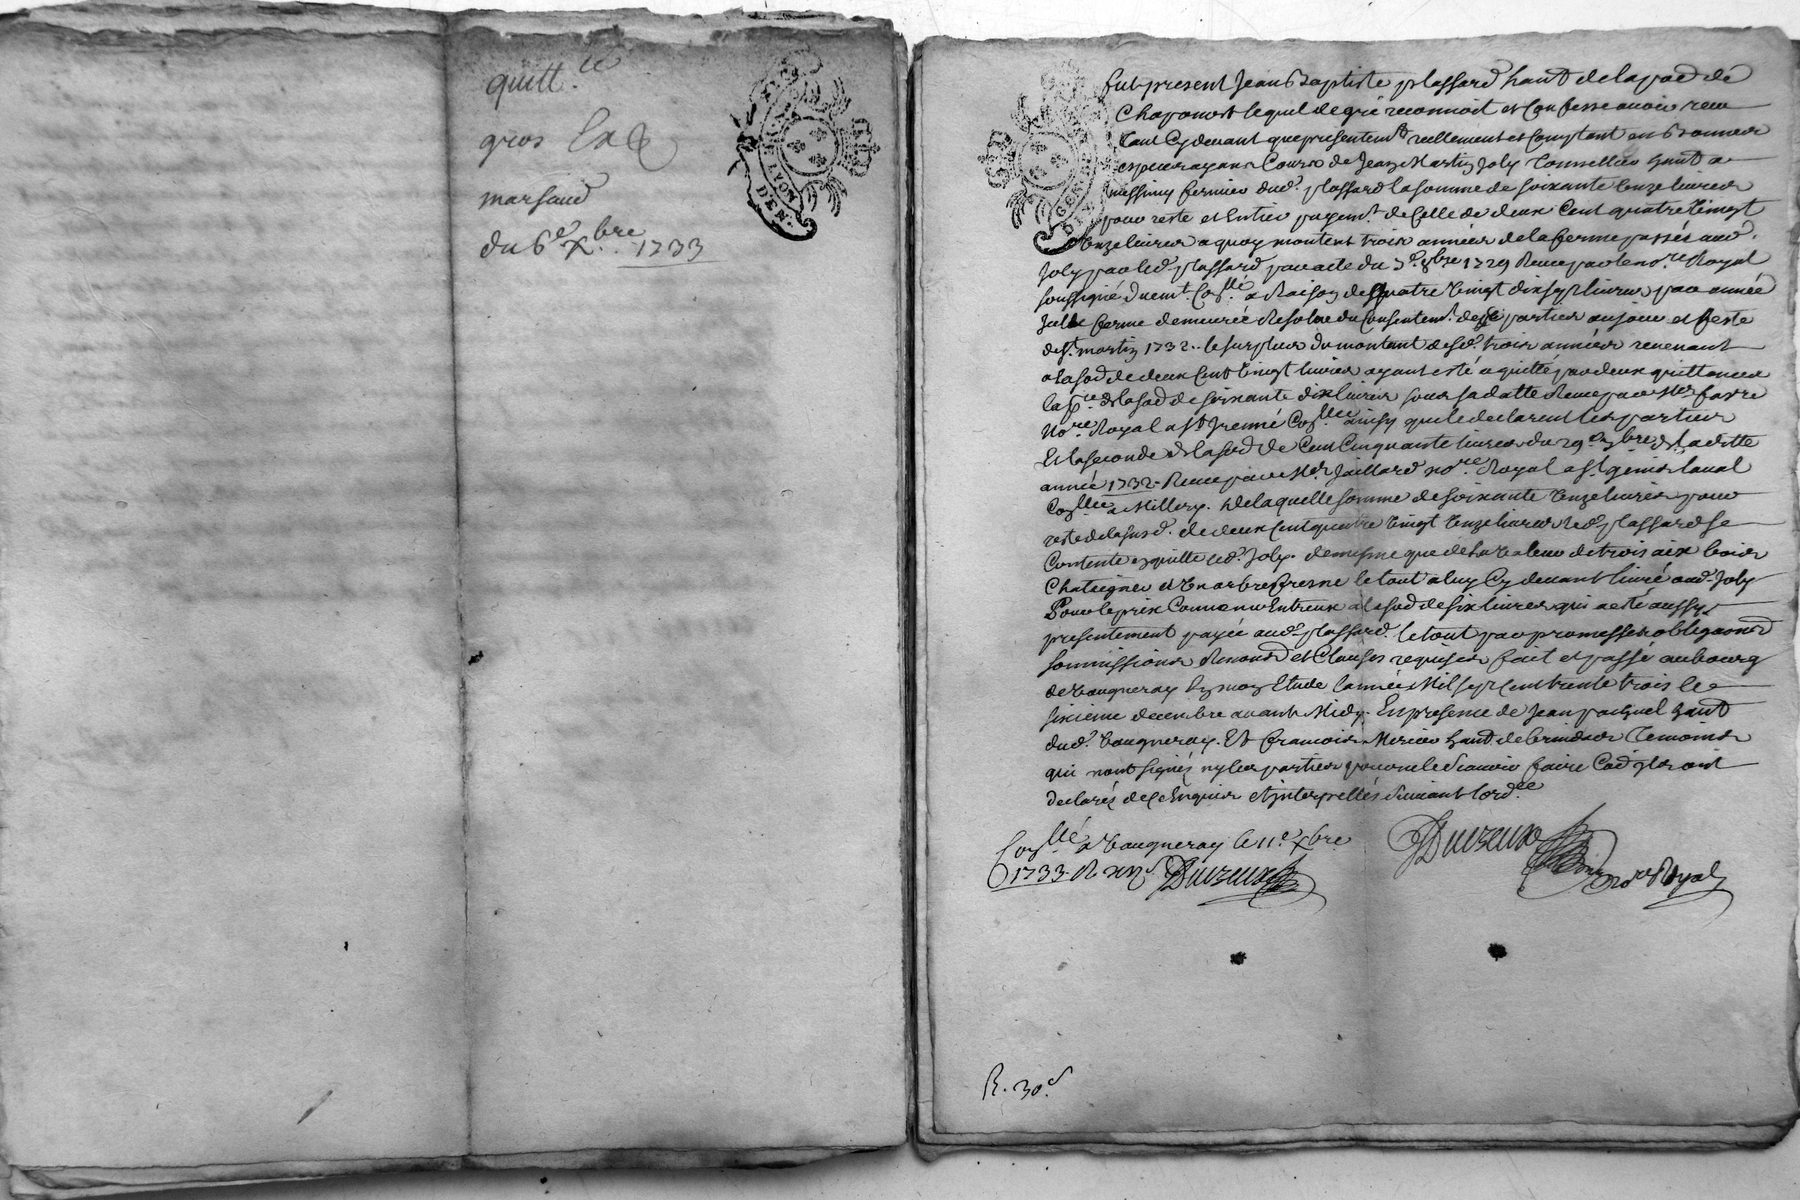 quitt.ce
gros
marsaud
du 6e xbre 1733
LYON
DEN.
GENE
fut present Jean Baptiste plassard habt de la parr de
Chaponost lequel de gré reconnoit et Confesse avoir receu
tant Cydevant que presentemt reellement et Comptant en Bonnes
especes ayant Cours de Jean Martin Joly Tonnellier habt a
messimy fermier dud. plassard la somme de soixante Onze livres
pour reste et Entier payemt de Celle de deux Cent quatre Vingt
Onze livres a quoy montent trois années de la ferme passée aud.
Joly par led plassard par acte du 8bre 1729 Receu par le nore Royal
soussigné duemt Collé a Raison de quatre Vingt dix sept livres par année
Jcelle ferme demeurée Resolue du Consentemt des parties au jour et feste
de St martin 1732. le surplus du montant desd. trois années revenant
a la sod de deux Cent Vingt livres ayant esté aquitté par deux quittances
la pre de la sod de soixante dix livres sous sa datte Receue par Me favre
Nore Royal a St Irenné Collée ainsy que le declarent les parties
Et la seconde de la sod de Cent Cinquante livres du 29e xbre de laditte
année 1732. Receue par Me Gaillard nore Royal a St genis laval
Collée a Millery. De laquelle somme de soixante Onze livres pour
reste de la susd. de deux Cent quatre Vingt Onze livres led. plassard se
Contente et quitte led. Joly. de mesme que de la Valeur de trois aix bois
Chataignier et Un arbre fresne le tout a luy Cy devant livré aud. Joly
Pour le prix Convenu Entreux a la sod de six livres qui a esté aussy
presentement payée aud. plassard. le tout par promesses obligaons
soumissions Renonons et Clauses requises fait et passé au bourg
de Vaugneray En mon Etude l'année Mil sept Cent trente trois le
sixieme decembre avant Midy. En presence de Jean habt
dud. Vaugneray. Et francois Mercier habt de brindas Temoins
qui n'ont signés ny les parties pour ne le Scavoir faire Comme Ils ont
declarés de ce Enquis et interpellés suivant l'ordce
Duverux
nore Royal
Collé a Vaugneray le 11e xbre
1733. R Duverux
R. 30s